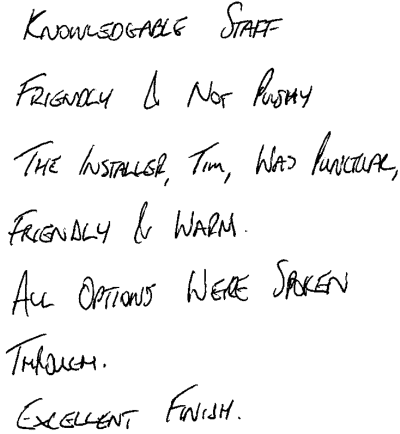 KNOWLEDGABLE STAFF
FRIENDLY & NOT PUSHY
THE INSTALLER, TIM, WAS PUNCTUAL,
FRIENDLY & WARM.
ALL OPTIONS WERE SPOKEN
THROUGH.
EXCELLENT FINISH.